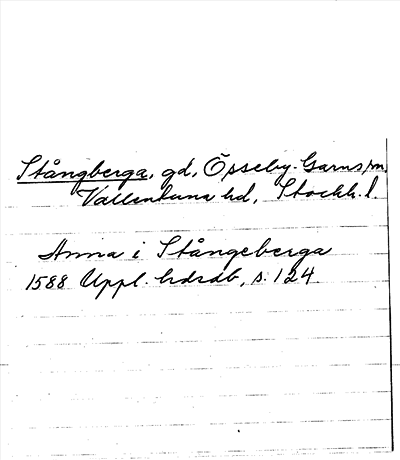 Stångberga, gd, Össeby-Garns sn,
Vallentuna hd, Stockh. l.
Anna i Stångeberga
1588 Uppl. hdrdb, s. 124